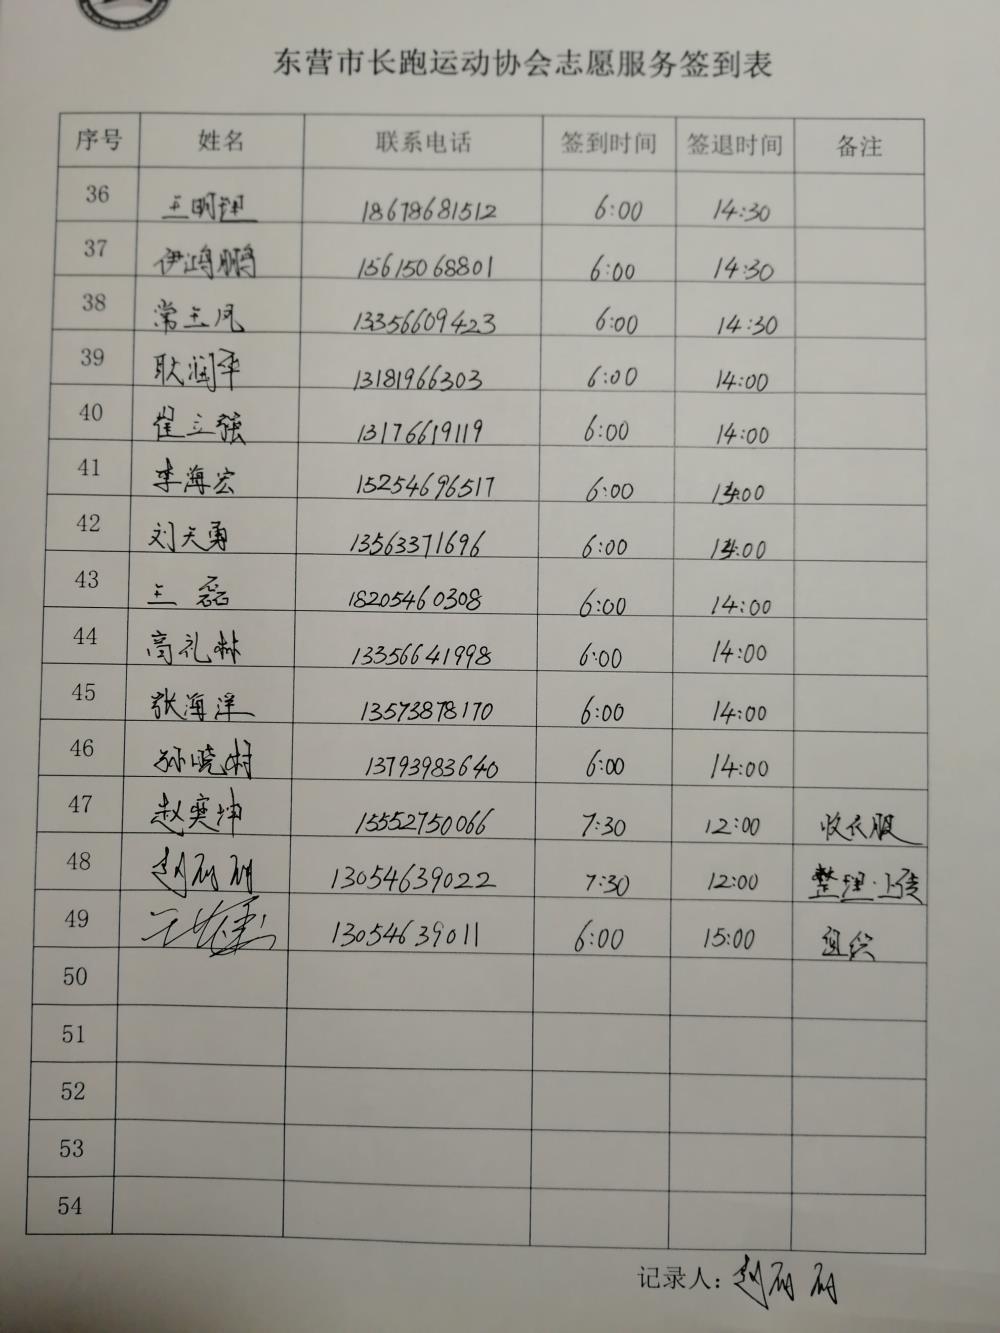 东营市长跑运动协会志愿服务签到表
序号 姓名 联系电话 签到时间 签退时间 备注
36 王明翔 18678681512 6:00 14:30
37 伊鸿鹏 15615068801 6:00 14:30
38 常玉凤 13356609423 6:00 14:30
39 耿润华 13181966303 6:00 14:00
40 崔立强 13176619119 6:00 14:00
41 李海宏 15254696517 6:00 14:00
42 刘天勇 13563371696 6:00 14:00
43 王磊 18205460308 6:00 14:00
44 高礼林 13356641998 6:00 14:00
45 张海洋 13573878170 6:00 14:00
46 孙晓村 13793983640 6:00 14:00
47 赵奕坤 15552750066 7:30 12:00 收衣服
48 赵丽丽 13054639022 7:30 12:00 整理·上传
49 13054639011 6:00 15:00 组织
50
51
52
53
54
记录人：赵丽丽